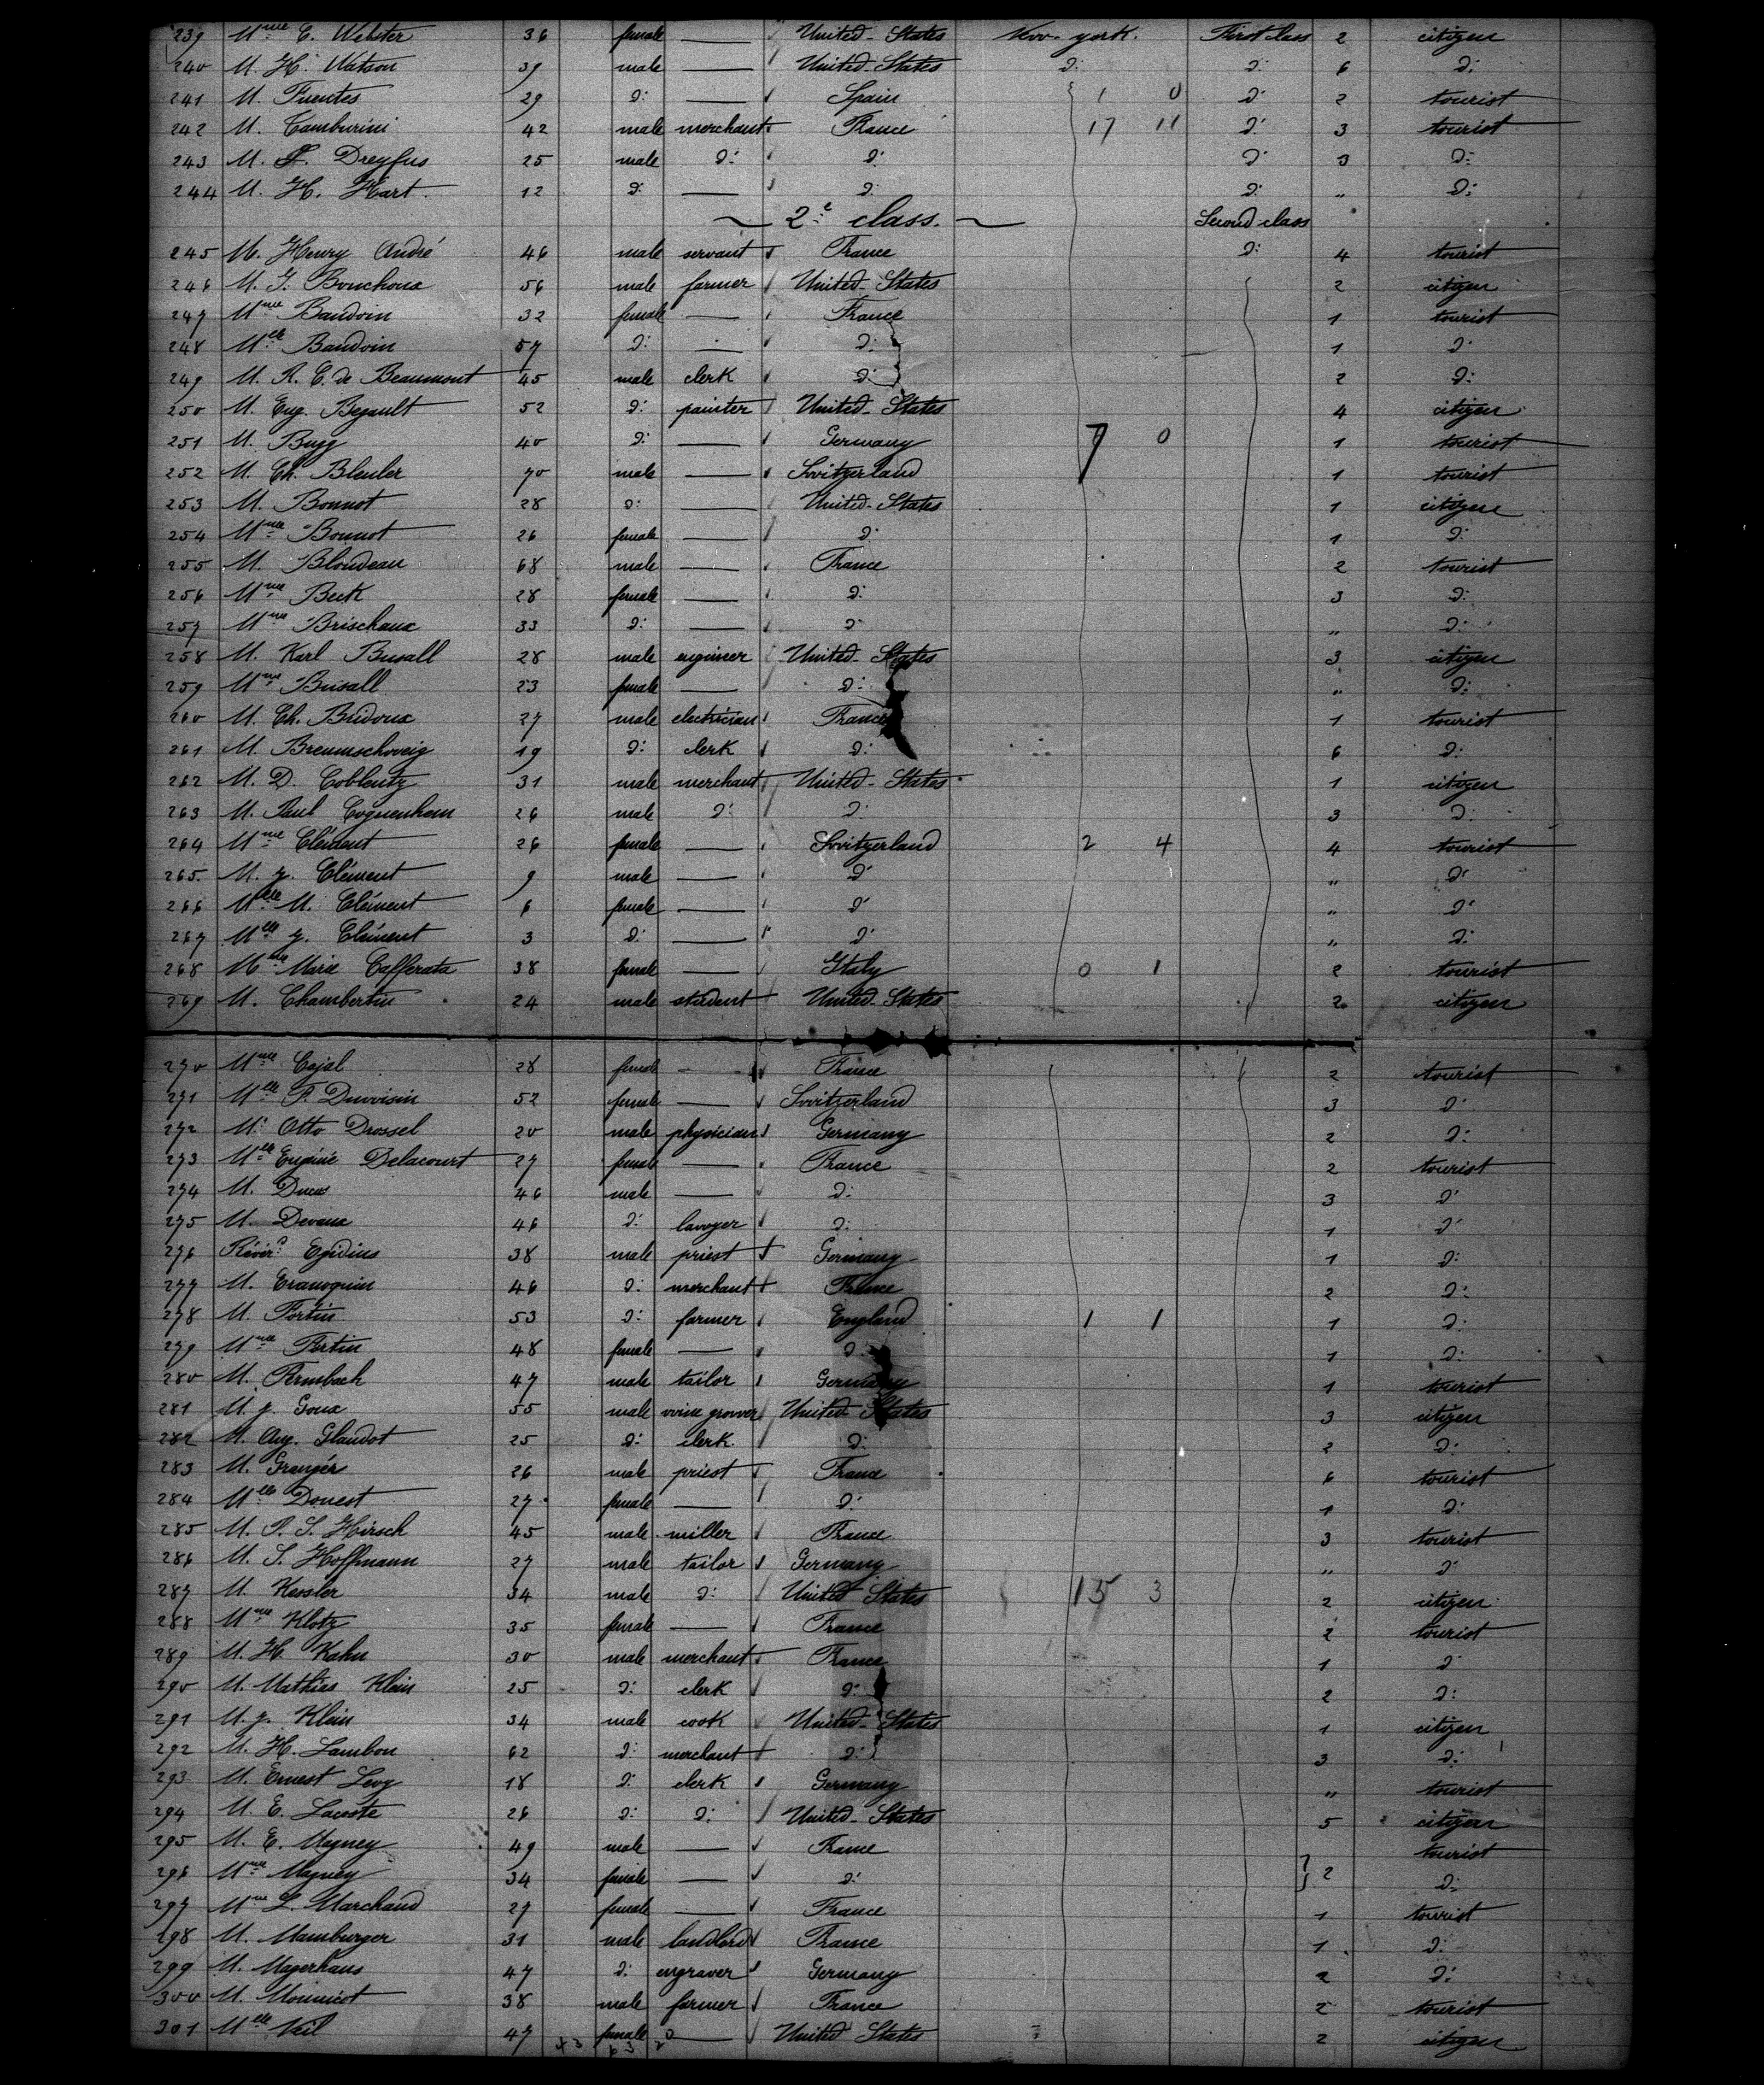 239 Mme C. Webster 36 female — United-States New-york. First class 2 citizen
240 M. H. Watson 39 male — United-States d: d: 6 d:
241 M. Fuentes 29 d: — Spain 1 0 d: 2 tourist
242 M. Camburini 42 male merchant France 17 11 d: 3 tourist
243 M. Dreyfus 25 male d: d: d: 3 d:
244 M. H. Hart. 12 d: — d: d: " d:
2e class. Second class
245 M. Henry André 46 male servant France d: 4 tourist
246 M. Bouchoux 56 male farmer United-States 2 citizen
247 Mme Baudoin 32 female — France 1 tourist
248 Melle Baudoin 57 d: — d: 1 d:
249 M. R. E. de Beaumont 45 male clerk d: 2 d:
250 M. Eug. Begault 52 d: painter United-States 4 citizen
251 M. Bugg 40 d: — Germany 7 0 1 tourist
252 M. Ch. Bleuler 70 male — Switzerland 1 tourist
253 M. Bonnot 28 d: — United-States 1 citizen
254 Mme Bonnot 26 female — d: 1 d:
255 M. Blondeau 68 male — France 2 tourist
256 Mme Beck 28 female — d: 3 d:
257 Mme Brischaux 33 d: — d: " d:
258 M. Karl Busall 28 male engineer United-States 3 citizen
259 Mme Busall 23 female — d: " d:
260 M. Ch. Bridoux 27 male electrician France 1 tourist
261 M. Breunschweig 19 d: clerk d: 6 d:
262 M. D. Coblentz 31 male merchant United-States 1 citizen
263 M. Paul Coguenhem 26 male d: d: 3 d:
264 Mme Clément 26 female — Switzerland 2 4 4 tourist
265. M. y. Clément 9 male — d: " d:
266 Melle M. Clément 6 female — d: " d:
267 Melle y. Clément 3 d: — d: " d:
268 Mme Marie Cafferata 38 female — Italy 0 1 2 tourist
269 M. Chambertin 24 male student United-States 2 citizen
270 Mme Cajal 28 female — France 2 tourist
271 Melle P. Duvoisin 52 female — Switzerland 3 d:
272 M. Otto Drossel 20 male physician Germany 2 d:
273 Melle Eugénie Delacourt 27 female — France 2 tourist
274 M. 46 male — d: 3 d:
275 M. Devaux 46 d: lawyer d: 1 d:
276 Réverd Egidius 38 male priest Germany 1 d:
277 M. 46 d: merchant France 2 d:
278 M. Fortin 53 d: farmer England 1 1 1 d:
279 Mme Fortin 48 female — d: 1 d:
280 M. Fernbach 47 male tailor Germany 1 tourist
281 M. y. Goux 55 male wine grower United States 3 citizen
282 M. Aug. Glaudot 25 d: clerk. d: 2 d:
283 M. Granger 26 male priest France 6 tourist
284 Melle Donest 27 female — d: 1 d:
285 M. P. S. Hirsch 45 male miller France 3 tourist
286 M. S. Hoffmann 27 male tailor Germany " d:
287 M. Kessler 34 male d: United States 15 3 2 citizen
288 Mme Klotz 35 female — France 2 tourist
289 M. H. Kahn 30 male merchant France 1 d:
290 M. Mathias Klein 25 d: clerk d: 2 d:
291 M. y. Klein 34 male cook United-States 1 citizen
292 M. H. Lambon 62 d: merchant d: 3 d:
293 M. Ernest Levy 18 d: clerk Germany " tourist
294 M. E. Lacoste 26 d: d: United-States 5 citizen
295 M. E. Magney 49 male — France tourist
296 Mme Magney 34 female — d: 2 d:
297 Mme L. Marchand 27 female — France 1 tourist
298 M. Mamburger 31 male landlord France 1 d:
299 M. Mayerhaus 47 d: engraver Germany 2 d:
300 M. Mounicot 38 male farmer France 2 tourist
301 Melle Neil 47 female — United States 2 citizen